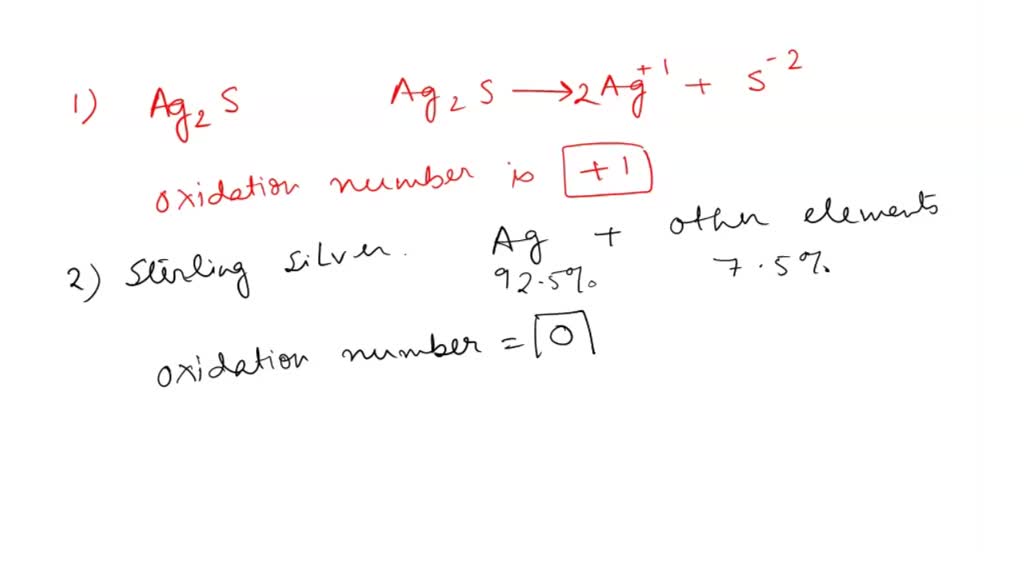 1) Ag₂S Ag₂S → 2Ag⁺¹ + S⁻²
oxidation number is +1
2) Sterling silver. Ag + other elements
92.5% 7.5%
oxidation number = 0